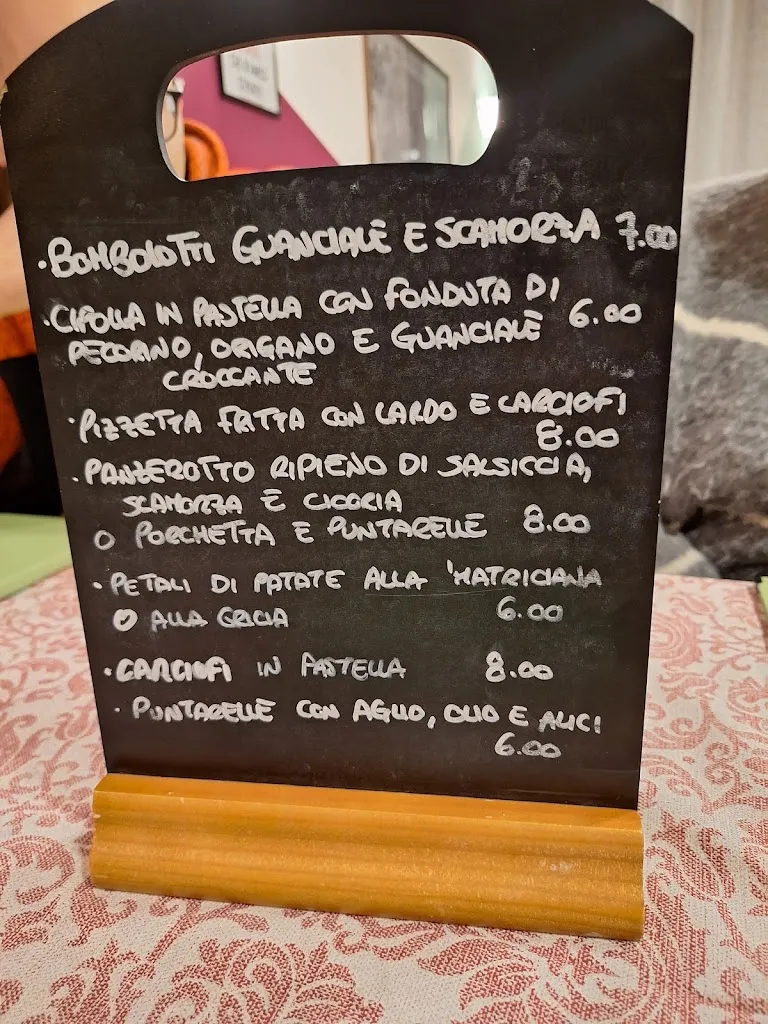 • BOMBOLOTTI GUANCIALE E SCAMORZA 7.00
• CIPOLLA IN PASTELLA CON FONDUTA DI 6.00
PECORINO, ORIGANO E GUANCIALE
CROCCANTE
• PIZZETTA FRITTA CON LARDO E CARCIOFI
8.00
• PANZEROTTO RIPIENO DI SALSICCIA,
SCAMORZA E CICORIA
O PORCHETTA E PUNTARELLE 8.00
• PETALI DI PATATE ALLA 'MATRICIANA
O ALLA GRICIA 6.00
• CARCIOFI IN PASTELLA 8.00
• PUNTARELLE CON AGLIO, OLIO E ALICI
6.00